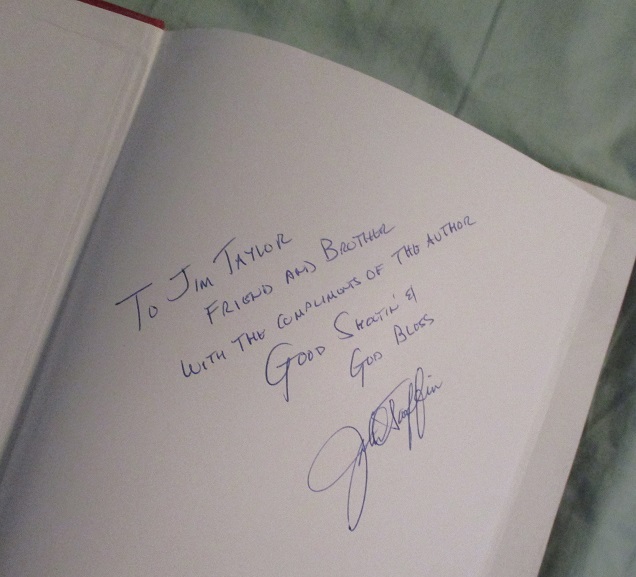 To Jim Taylor
Friend and Brother
With the compliments of the author
Good Shootin' &
God Bless
John Taffin